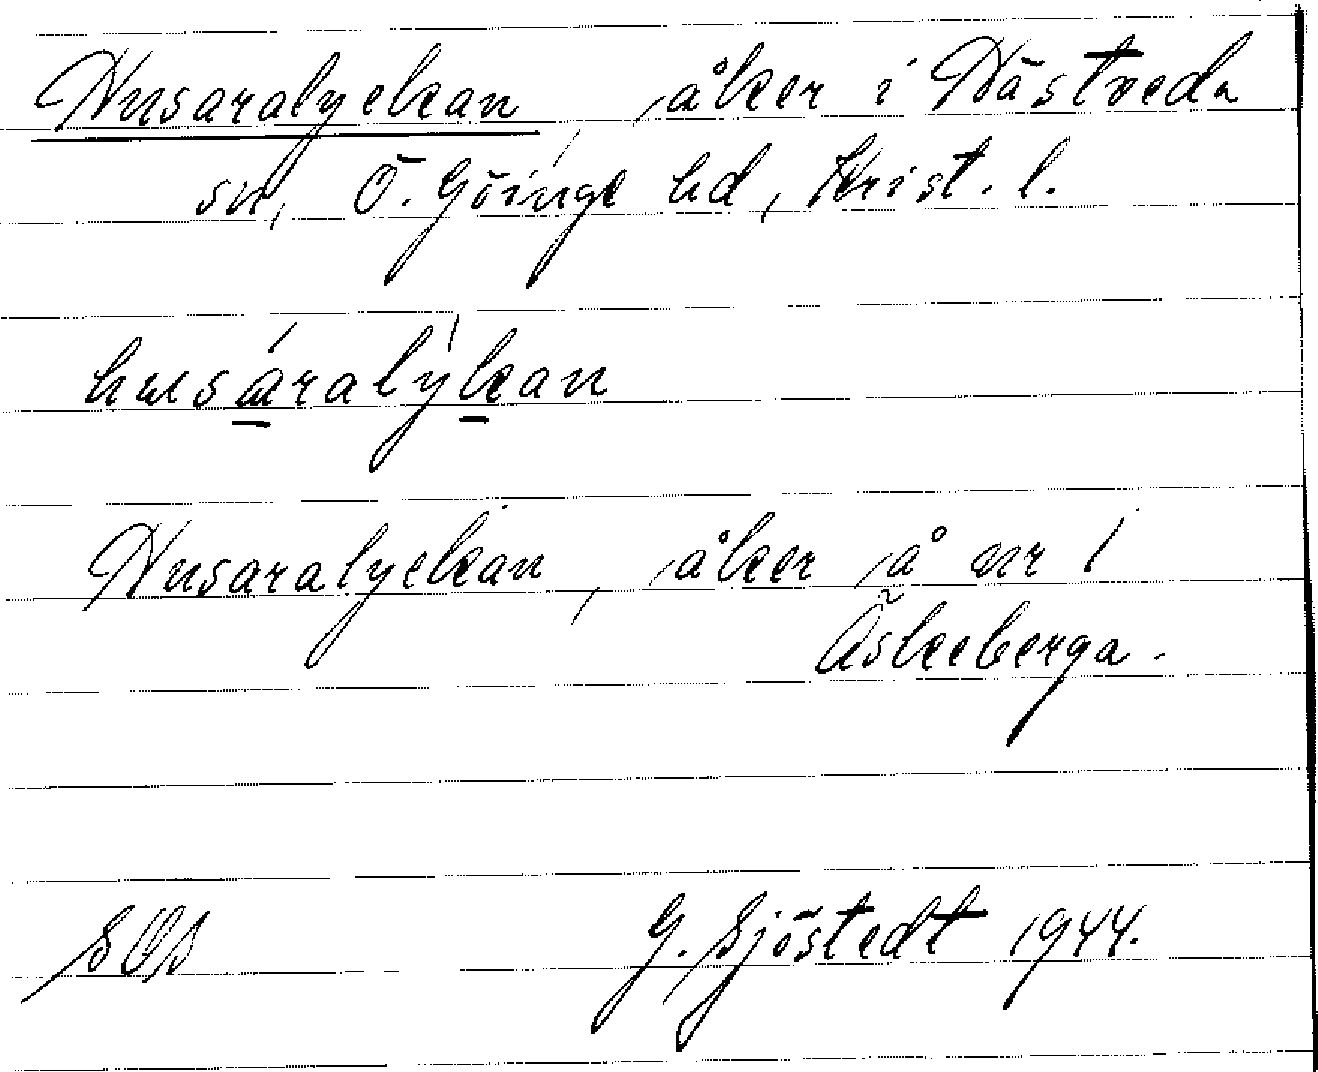 Husaralyckan, åker i Hästveda
sn, Ö. Göinge hd, Krist. l.
husáralýkan
Husaralyckan, åker å nr 1
Äskeberga.
G. Sjöstedt 1944.